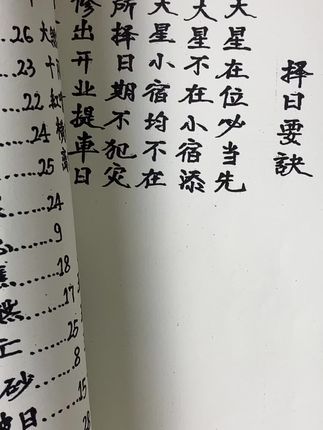 择日要訣
大星在位必当先
大星不在小宿添
大星小宿均不在
所择日期不犯灾
修出开业提車日
...26 大
...23 十
...22
...24
...25
...24
...9
...18
...17
工...25
砂...8
日...15
28